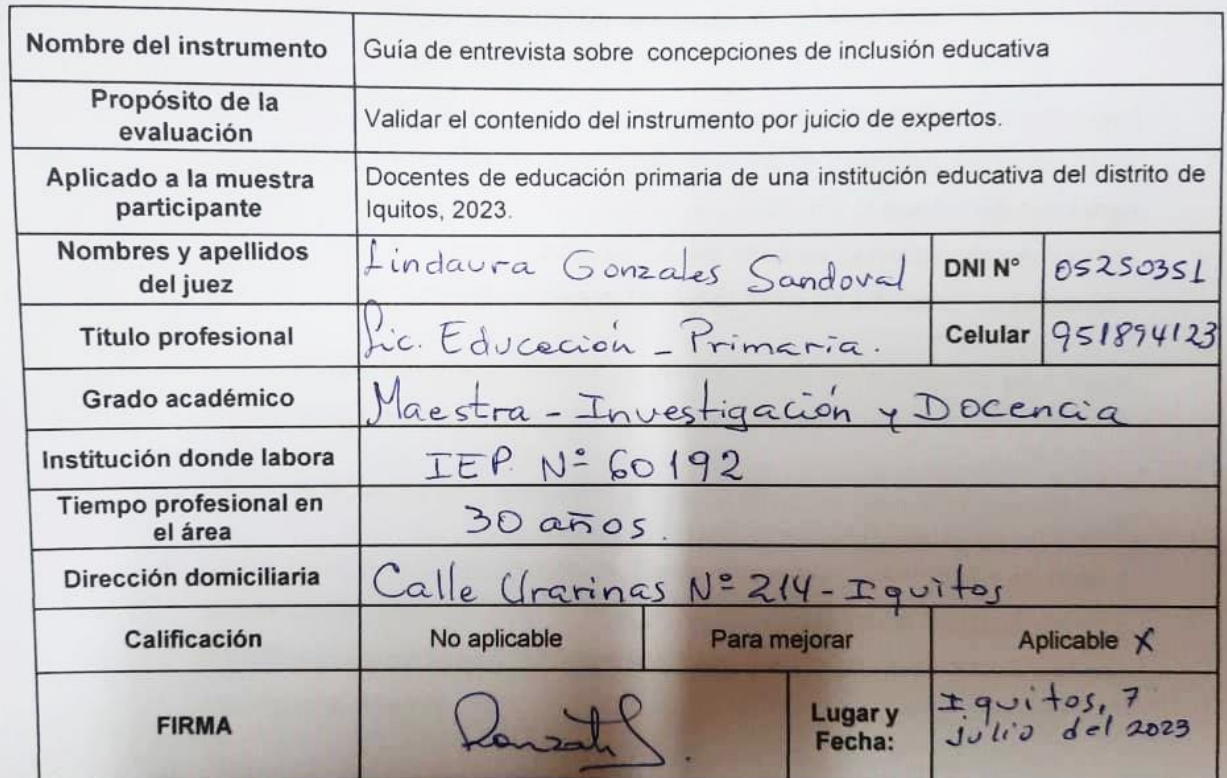 Nombre del instrumento
Guía de entrevista sobre concepciones de inclusión educativa
Propósito de la
evaluación
Validar el contenido del instrumento por juicio de expertos.
Aplicado a la muestra
participante
Docentes de educación primaria de una institución educativa del distrito de
Iquitos, 2023.
Nombres y apellidos
del juez
Lindaura Gonzales Sandoval
DNI N°
05250351
Título profesional
Lic. Educeción - Primaria.
Celular
951894123
Grado académico
Maestra - Investigación y Docencia
Institución donde labora
IEP. Nº 60192
Tiempo profesional en
el área
30 años.
Dirección domiciliaria
Calle Urarinas Nº 214 - Iquitos
Calificación
No aplicable
Para mejorar
Aplicable X
FIRMA
Lugar y
Fecha:
Iquitos, 7
julio del 2023